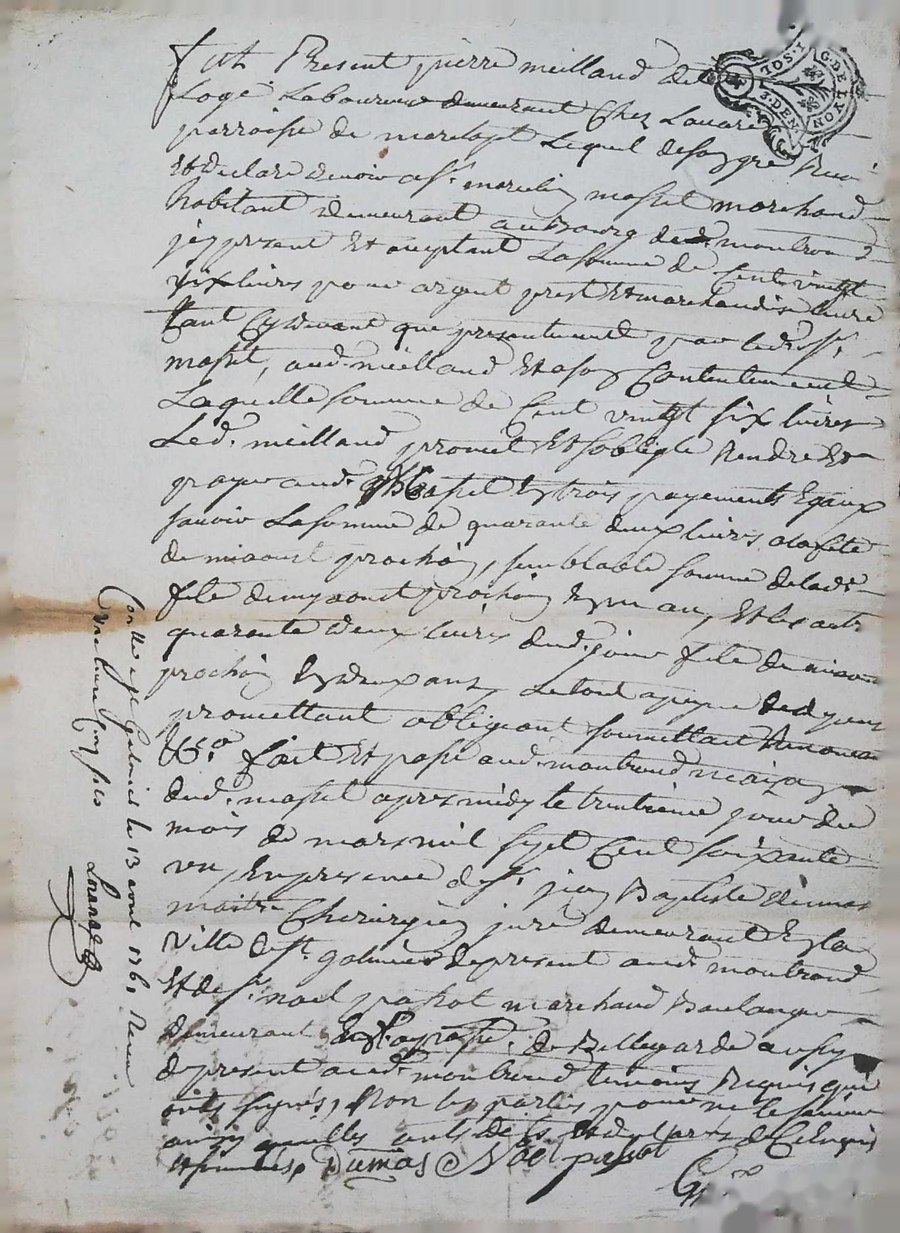 fut Present pierre meilland dit
Logé Laboureur demeurant Chez Lavare
parroisse de marclopt Lequel de son gre
Et declare devoir a sr. marcelin massel marchand
habitant demeurant au Bourg de montrond
icy present Et aceptant La somme de Cent vingt
six livres pour argent presté Et marchandise livré
tant Cy devant que presentement par ledt. sr.
massel, aud. meilland Et a son Contentement
Laquelle somme de Cent vingt six livres
Led. meilland promet Et soblige Rendre Et
payer aud. Massel En trois payements Egaux
savoir La somme de quarante deux livres a la fete
de mi aout prochain, semblable somme de lad.
fete de my aout prochain En un an, Et les autres
quarante deux livres dud. jour fete de mi aout
prochain En deux ans, Le tout a peyne de
promettant obligeant soumettant Renoncan
&ca. fait Et passé aud. montrond maison
dud. massel apres midy le trentieme jour du
mois de mars mil sept Cent soixante
un, En presence de sr. jean Baptiste dumas
maitre Chirurgien juré demeurant En la
Ville de st. galmier de present aud. montrond
Et de sr. noel passot marchand Boulanger
demeurant En la parroisse de Bellegarde aussy
de present aud. montrond temoins Requis qui
onts signés, Non les parties pour ne le savoir
ainsy quelles onts dit de Ce Enquis
Et sommés, Dumas Noël passot
TOS. I
G. DE LYON
3. DEN.
Conlle a st Galmier le 13 avril 1761 Recu